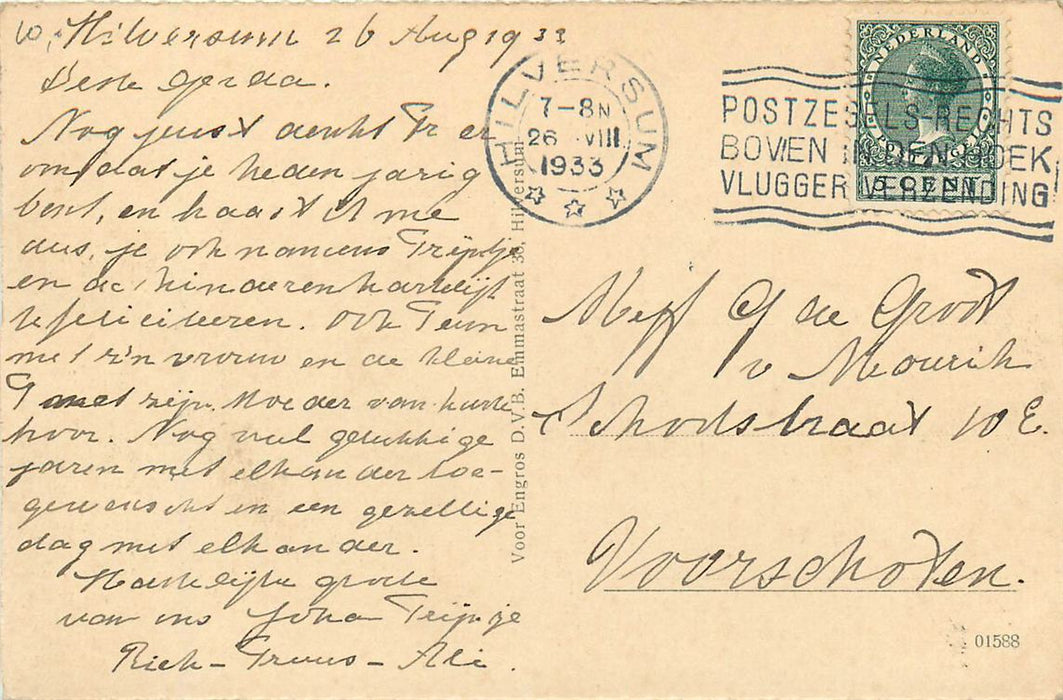 Hilversum 26 Aug 1933
Beste Gerda.
Nog juist denkt Tr er
om dat je heden jarig
bent, en haast U me
dus, je ook namens Trijntje
en de kinderen hartelijk
te feliciteeren. Ook Teun
met z'n vrouw en de kleine
T met zijn Moeder van harte
hoor. Nog veel gelukkige
jaren met elkander toe-
gewenscht en een gezellige
dag met elkander.
Hartelijke groete
van ons Joha Trijntje
Riek - Truus - Ali.
HILVERSUM
7-8N
26 VIII
1933
NEDERLAND
5 CENT
POSTZEGELS-RECHTS
BOVEN IN DEN HOEK
VLUGGER VERZENDING!
Voor Engros D.V.B. Emmastraat 38, Hilversum
Mej G de Groot
v Mourik
Schoolstraat 10 E.
Voorschoten.
01588